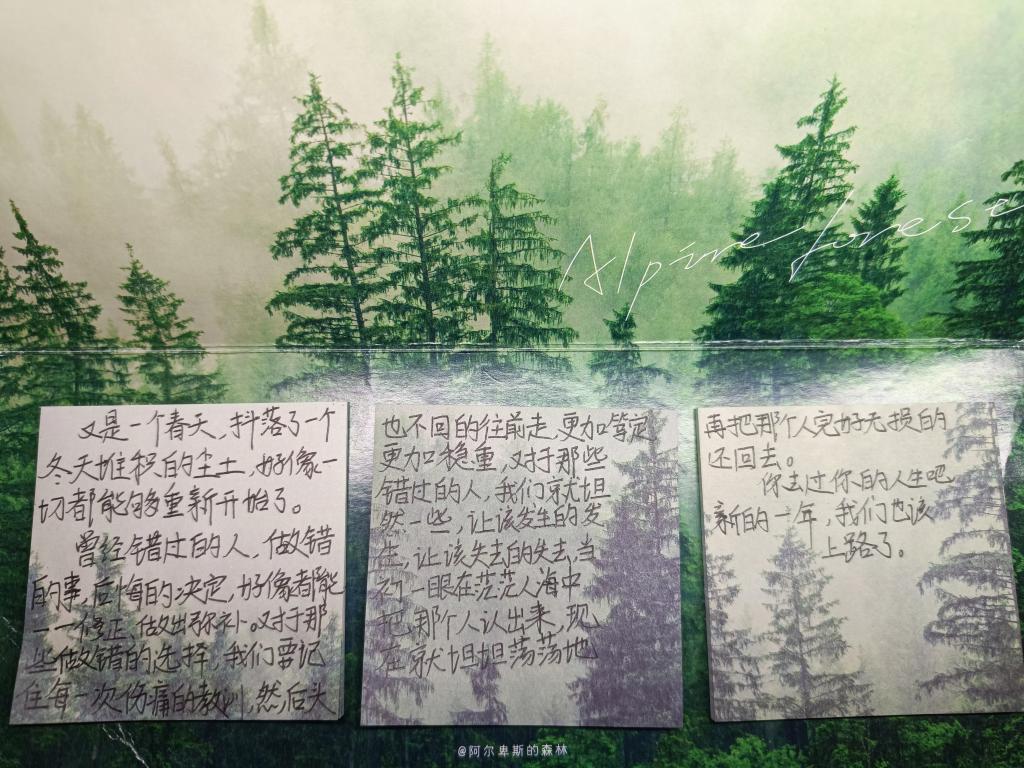 Alpine forest
又是一个春天，抖落了一个
冬天堆积的尘土，好像一
切都能够重新开始了。
曾经错过的人，做错
的事，后悔的决定，好像都能
一一修正、做出弥补。对于那
些做错的选择，我们要记
住每一次伤痛的教训，然后头
也不回的往前走，更加笃定
更加稳重，对于那些
错过的人，我们就坦
然一些，让该发生的发
生，让该失去的失去，当
初一眼在茫茫人海中
把那个人认出来，现
在就坦坦荡荡地
再把那个人完好无损的
还回去。
你去过你的人生吧
新的一年，我们也该
上路了。
@阿尔卑斯的森林